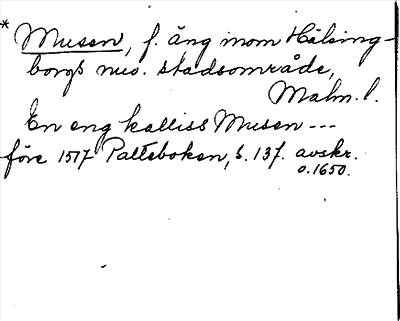 * Musen, f. äng inom Hälsing-
borgs nuv. stadsområde,
Malm. l.
En eng kalliss Musen ---
före 1517 Palteboken, s. 137. avskr.
o. 1650.